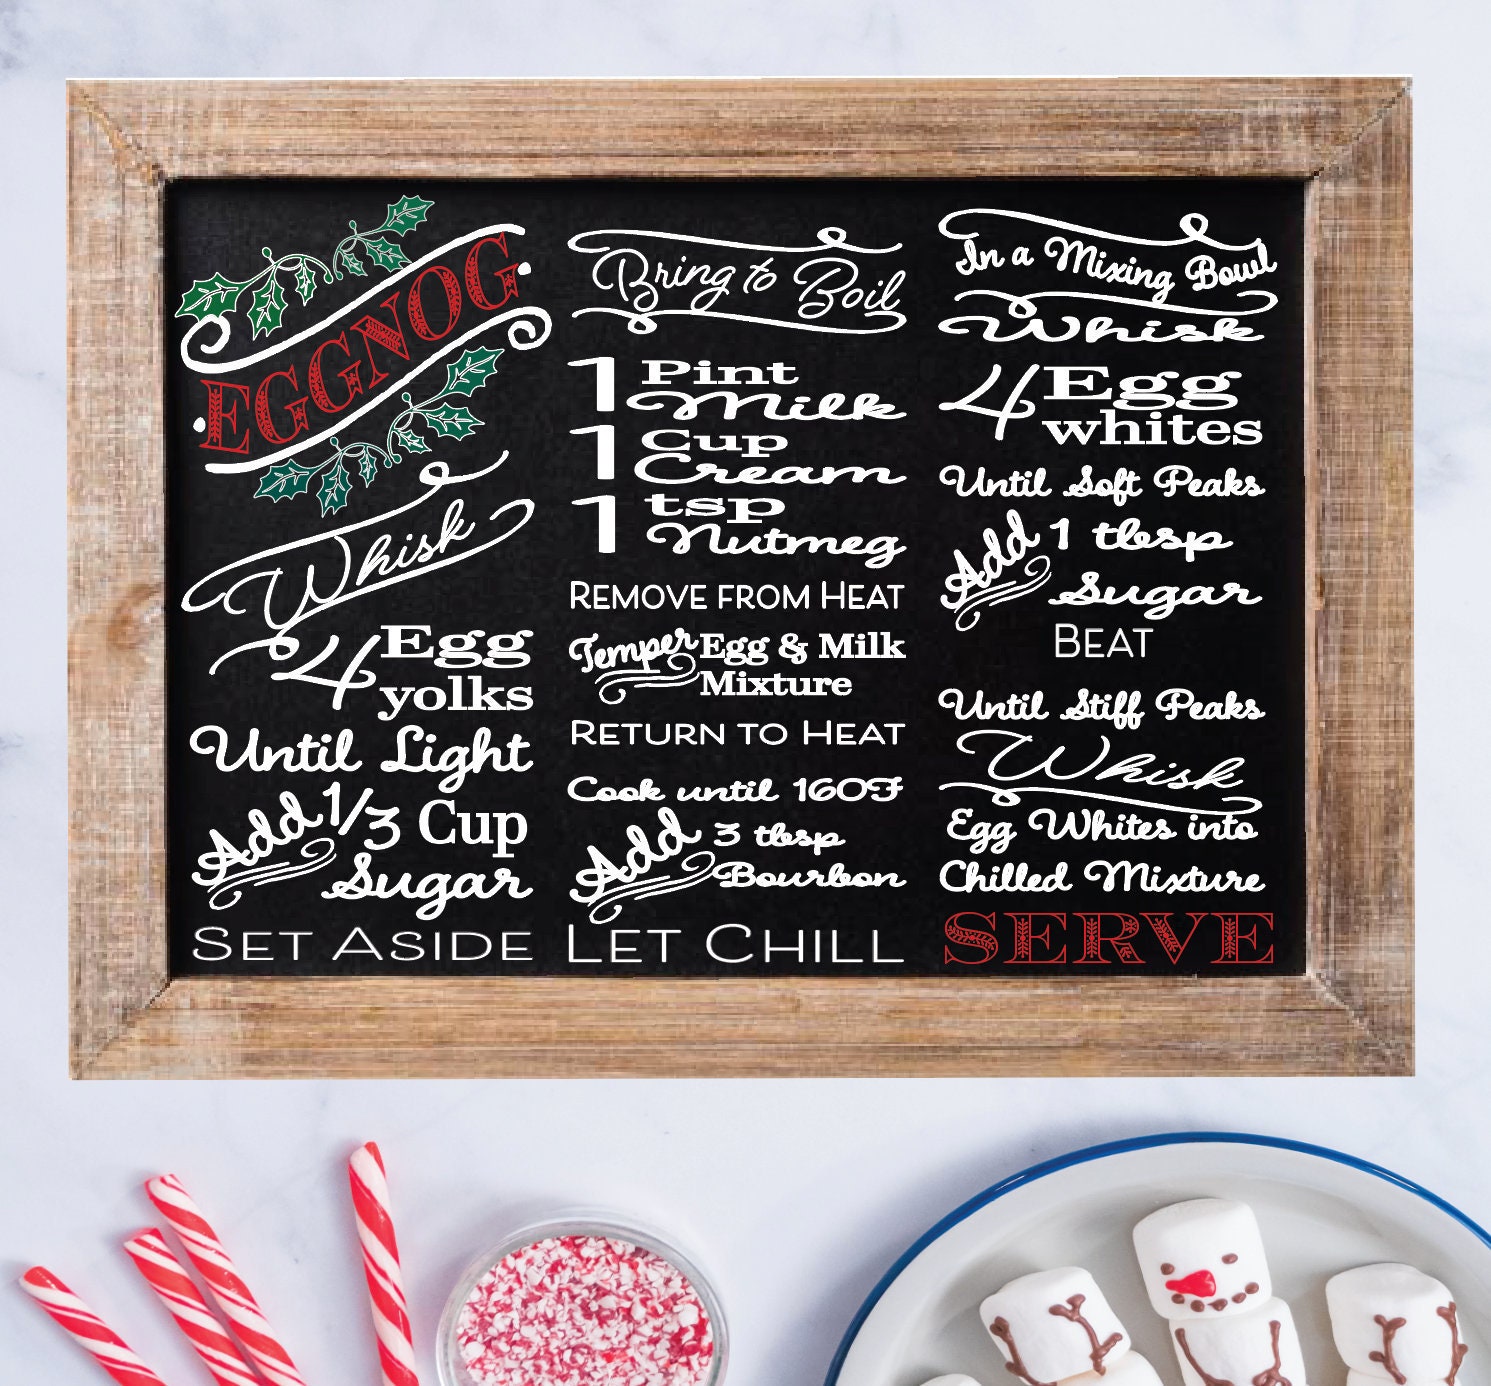 EGGNOG
Whisk
4 Egg
yolks
Until Light
Add 1/3 Cup
Sugar
SET ASIDE
Bring to Boil
1 Pint
Milk
1 Cup
Cream
1 tsp
Nutmeg
REMOVE FROM HEAT
Temper Egg & Milk
Mixture
RETURN TO HEAT
Cook until 160F
Add 3 tbsp
Bourbon
LET CHILL
In a Mixing Bowl
Whisk
4 Egg
whites
Until Soft Peaks
Add 1 tbsp
Sugar
BEAT
Until Stiff Peaks
Whisk
Egg Whites into
Chilled Mixture
SERVE